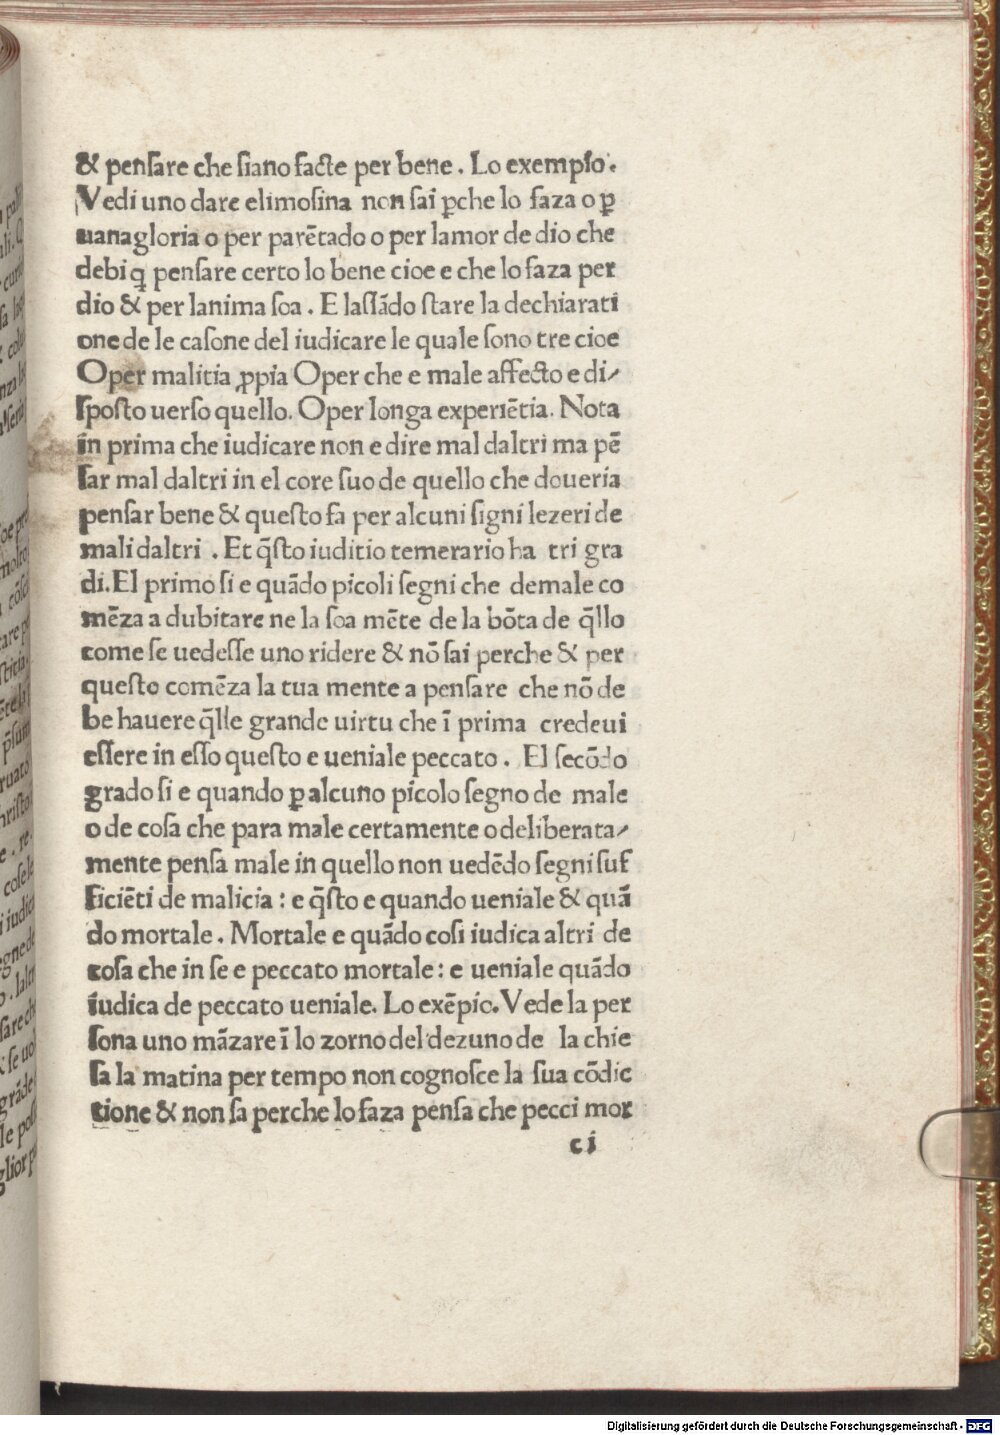 & penſare che ſiano facte per bene . Lo exemplo .
Vedi uno dare elimoſina non ſai ꝑche lo faza o ꝑ
uanagloria o per parētado o per lamor de dio che
debi penſare certo lo bene cioe e che lo faza per
dio & per lanima ſoa . E laſſādo ſtare la dechiarati
one de le caſone del iudicare le quale ſono tre cioe
Oper malitia ꝓpia Oper che e male affecto e di⸗
ſpoſto uerſo quello. Oper longa experiētia. Nota
in prima che iudicare non e dire mal daltri ma pē
ſar mal daltri in el core ſuo de quello che doueria
penſar bene & queſto fa per alcuni ſigni lezeri de
mali daltri . Et q̄ſto iuditio temerario ha tri gra
di. El primo ſi e quādo picoli ſegni che de male co
mēza a dubitare ne la ſoa mēte de la bōta de q̄llo
come ſe uedeſſe uno ridere & nō ſai perche & per
queſto comēza la tua mente a penſare che nō de
be hauere q̄lle grande uirtu che ī prima credeui
eſſere in eſſo queſto e ueniale peccato . El ſecōdo
grado ſi e quando ꝑ alcuno picolo ſegno de male
o de coſa che para male certamente o deliberata⸗
mente penſa male in quello non uedēdo ſegni ſuf
ficiēti de malicia : e q̄ſto e quando ueniale & quā
do mortale . Mortale e quādo coſi iudica altri de
coſa che in ſe e peccato mortale : e ueniale quādo
iudica de peccato ueniale. Lo exēpio. Vede la per
ſona uno māzare ī lo zorno del dezuno de la chie
ſa la matina per tempo non cognoſce la ſua cōdic
tione & non ſa perche lo faza penſa che pecci mor
c i
Digitalisierung gefördert durch die Deutsche Forschungsgemeinschaft - DFG